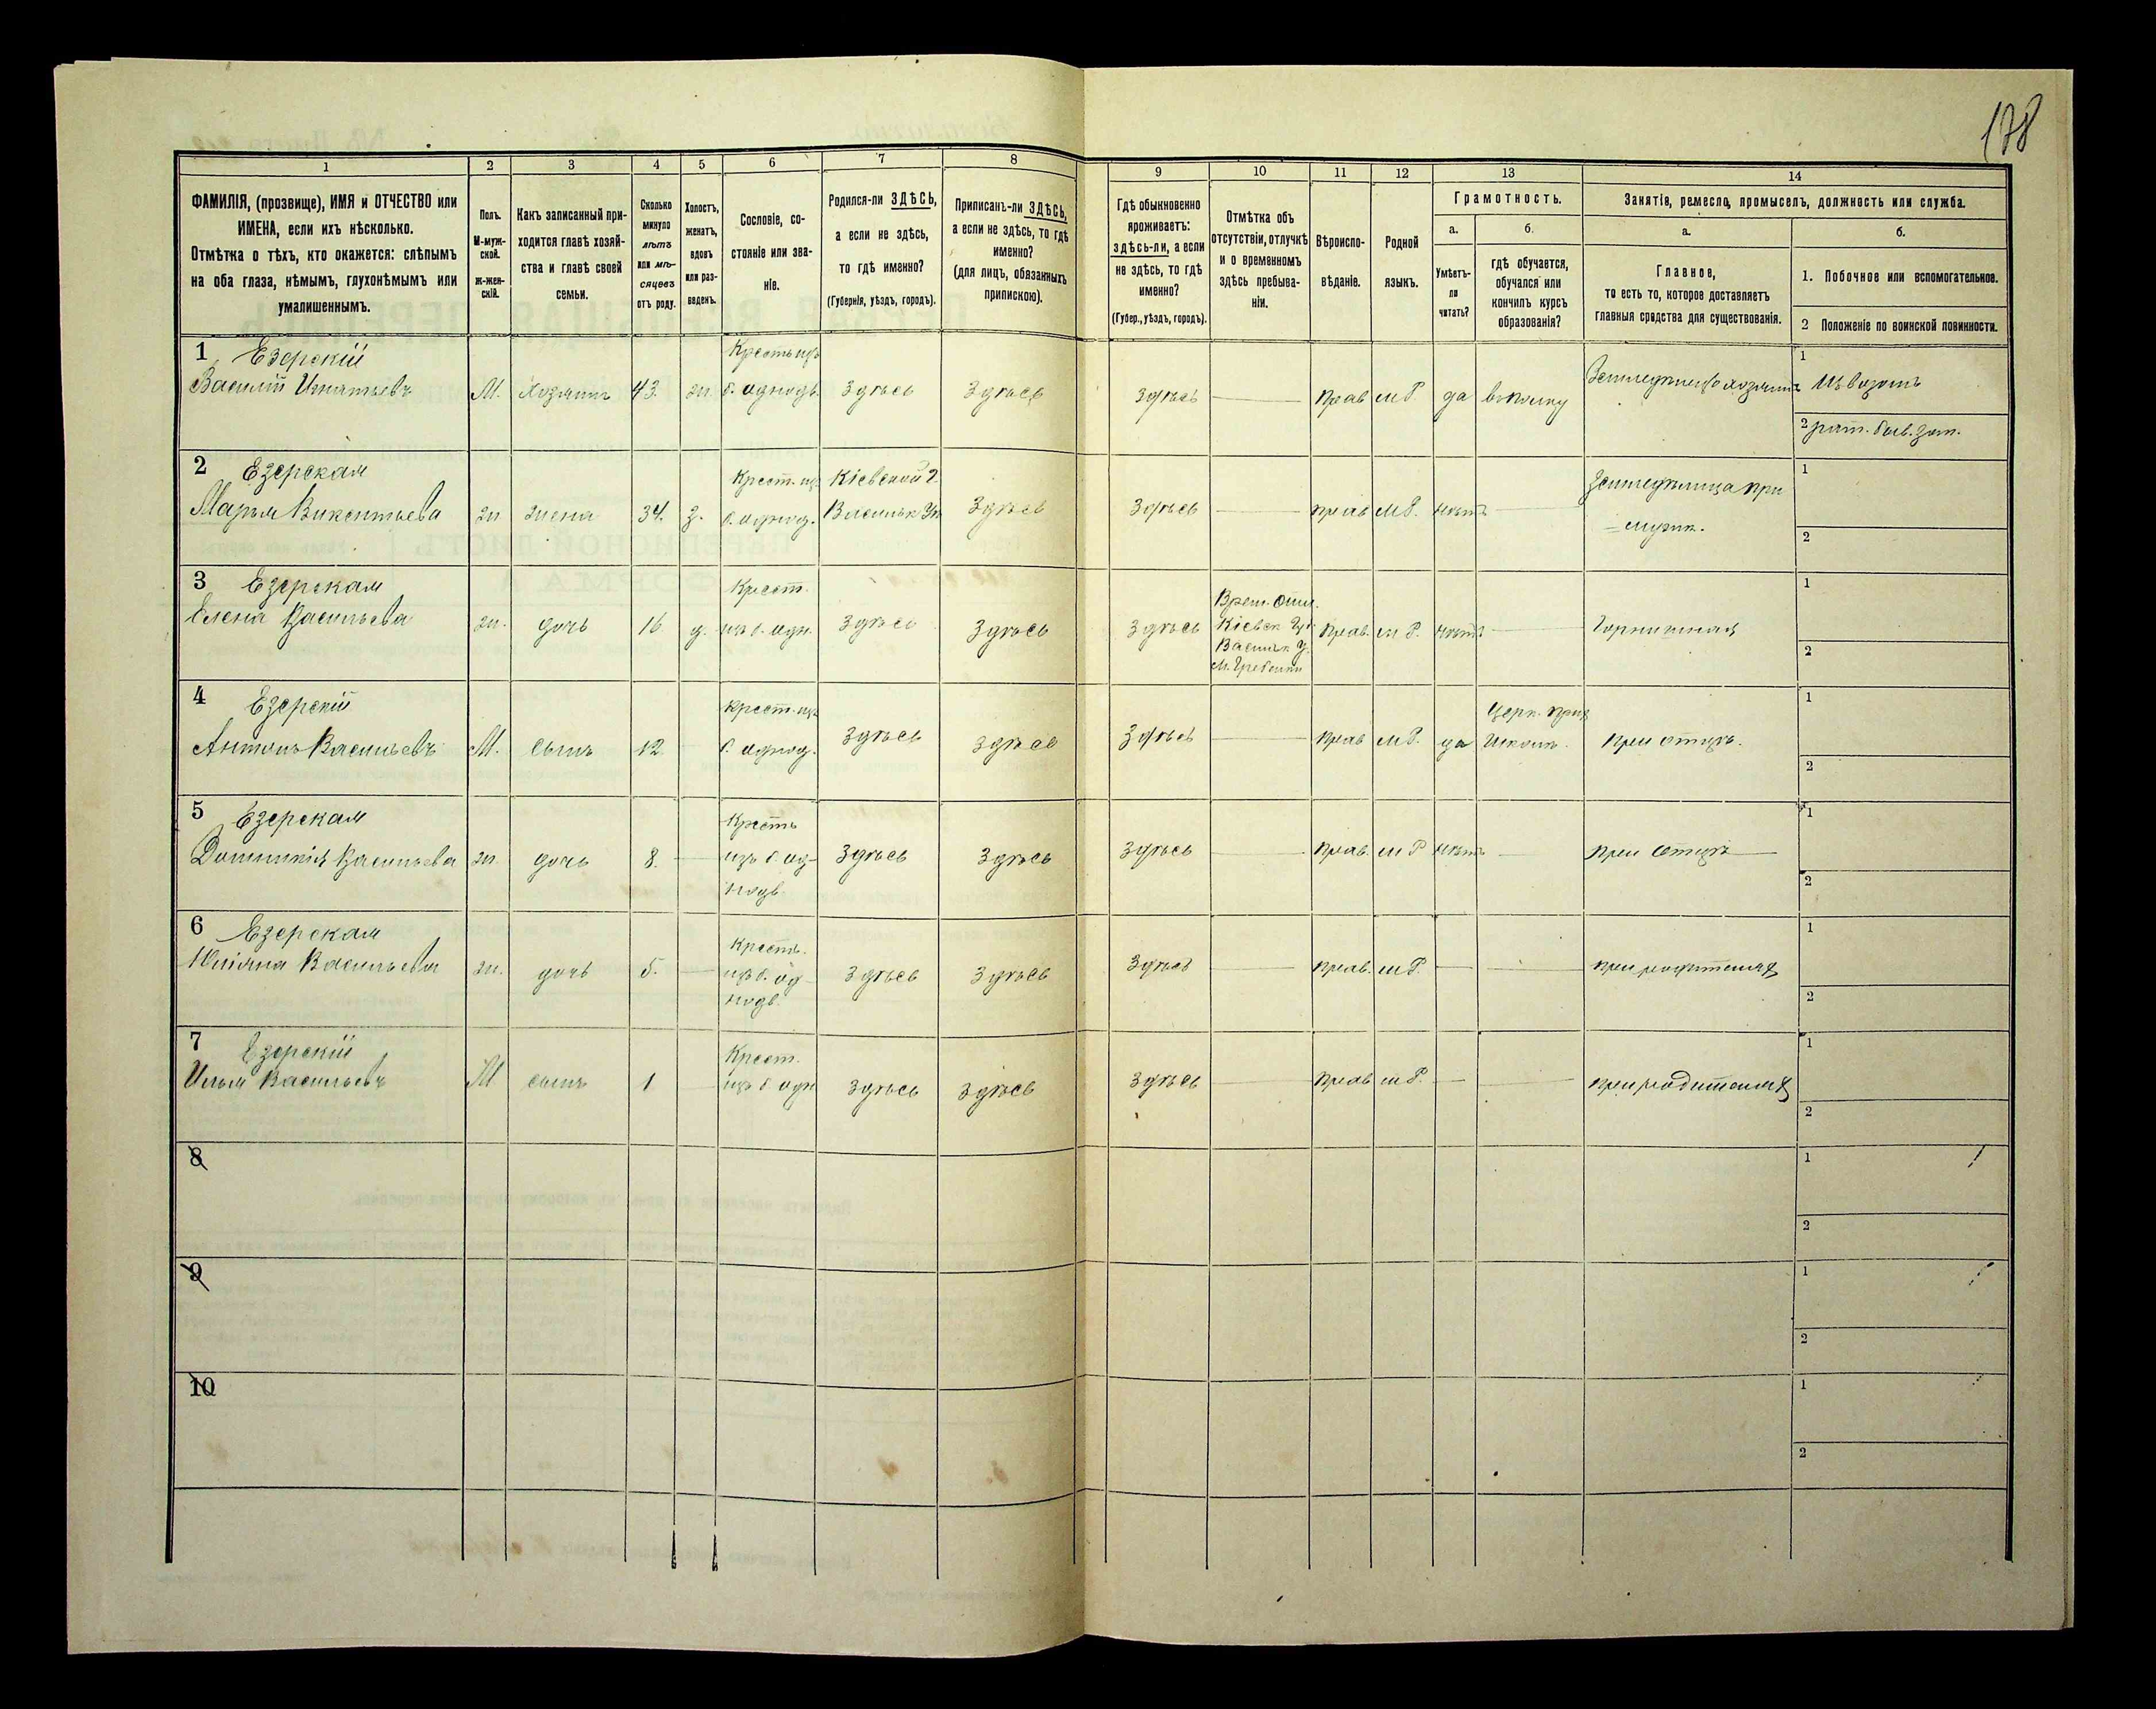 178
1
ФАМИЛІЯ, (прозвище), ИМЯ и ОТЧЕСТВО или
ИМЕНА, если ихъ нѣсколько.
Отмѣтка о тѣхъ, кто окажется: слѣпымъ
на оба глаза, нѣмымъ, глухонѣмымъ или
умалишеннымъ.
2
Полъ.
М-муж-
ской.
Ж-жен-
скій.
3
Какъ записанный при-
ходится главѣ хозяй-
ства и главѣ своей
семьи.
4
Сколько
минуло
лѣтъ
или мѣ-
сяцевъ
отъ роду.
5
Холостъ,
женатъ,
вдовъ
или раз-
веденъ.
6
Сословіе, со-
стояніе или зва-
ніе.
7
Родился-ли ЗДѢСЬ,
а если не здѣсь,
то гдѣ именно?
(Губернія, уѣздъ, городъ).
8
Приписанъ-ли ЗДѢСЬ,
а если не здѣсь, то гдѣ
именно?
(для лицъ, обязанныхъ
припискою).
9
Гдѣ обыкновенно
проживаетъ:
здѣсь-ли, а если
не здѣсь, то гдѣ
именно?
(Губер., уѣздъ, городъ).
10
Отмѣтка объ
отсутствіи, отлучкѣ
и о временномъ
здѣсь пребыва-
ніи.
11
Вѣроиспо-
вѣданіе.
12
Родной
языкъ.
13
Грамотность.
а.
Умѣетъ-
ли
читать?
б.
гдѣ обучается,
обучался или
кончилъ курсъ
образованія?
14
Занятія, ремесло, промыселъ, должность или служба.
а.
Главное,
то есть то, которое доставляетъ
главныя средства для существованія.
б.
1. Побочное или вспомогательное.
2 Положеніе по воинской повинности.
1 Езерскій
Василій Игнатьевъ
М.
хозяинъ
43.
ж.
Крестьиз
б. однодв.
Здѣсь
Здѣсь
Здѣсь
прав
м Р.
да
1
2 рат.
2 Езерская
Марья Викентьева
ж
жена
34.
з.
Крест. из
б. однод.
Кіевской г.
Васильк Уѣ
Здѣсь
Здѣсь
прав
м Р.
нѣтъ
Земледѣлица при
мужѣ.
1
2
3 Езерская
Елена Васильева
ж.
дочь
16
д.
Крест.
из б. одн.
Здѣсь
Здѣсь
Здѣсь
Врем. отл.
Кіевск Губ
Васильк У.
м. Гребенки
прав.
м Р.
нѣтъ
Горничная
1
2
4 Езерскій
Антонъ Васильевъ
М.
сынъ
12
крест. из
б. однод.
Здѣсь
Здѣсь
Здѣсь
прав
м Р.
да
Церк. прих
школѣ.
при отцѣ.
1
2
5 Езерская
Доминикія Васильева
ж.
дочь
8.
Кресть
изъ б. од-
нодв
Здѣсь
Здѣсь
Здѣсь
прав.
м Р
нѣтъ
при отцѣ
1
2
6 Езерская
Юліяна Васильева
ж.
дочь
5.
Кресть.
из б. од-
нодв.
Здѣсь
Здѣсь
Здѣсь
прав.
м Р.
при родителях
1
2
7 Езерскій
Илья Васильевъ
М
сынъ
1
Крест.
из б одн
Здѣсь
Здѣсь
Здѣсь
прав
м Р.
при родителях
1
2
8
1
2
9
1
2
10
1
2